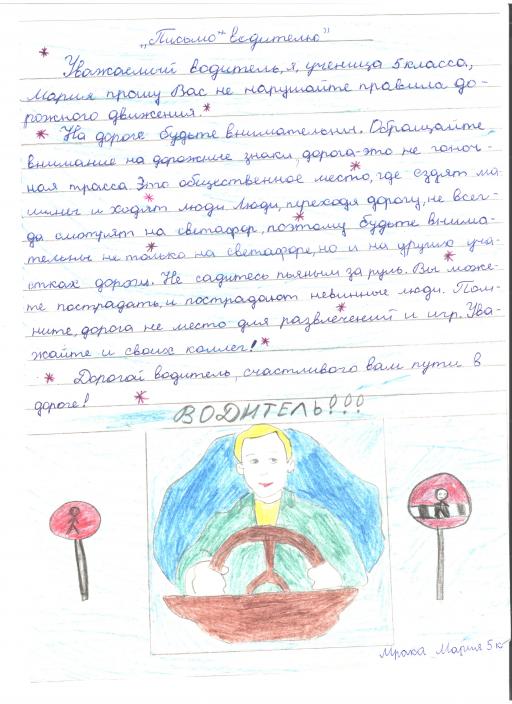 „Письмо водителю"
Уважаемый водитель, я, ученица 5 класса,
Мария прошу Вас не нарушайте правила до-
рожного движения.
На дороге будьте внимательны. Обращайте
внимание на дорожные знаки, дорога-это не гоноч-
ная трасса. Это общественное место, где ездят ма-
шины и ходят люди. Люди, переходя дорогу, не всег-
да смотрят на светафор, поэтому будьте внима-
тельны не только на светафоре, но и на других уча-
стках дороги. Не садитесь пьяным за руль. Вы може-
те пострадать, и пострадают невинные люди. Пом-
ните, дорога не место для развлечений и игр. Ува-
жайте и своих коллег!
Дорогой водитель, счастливого вам пути в
дороге!
ВОДИТЕЛЬ!!!
Мария 5 кл